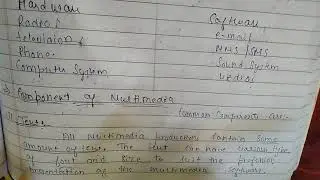 Hardware Software
Radio & e-mail
Television & MMS/SMS
Phone Sound System
Computer System Video
Component of Multimedia
Common Components are:-
Text:
All Multimedia productions contain some
amount of text. The text can have various type
of font and size to suit the
presentation of the multimedia software.